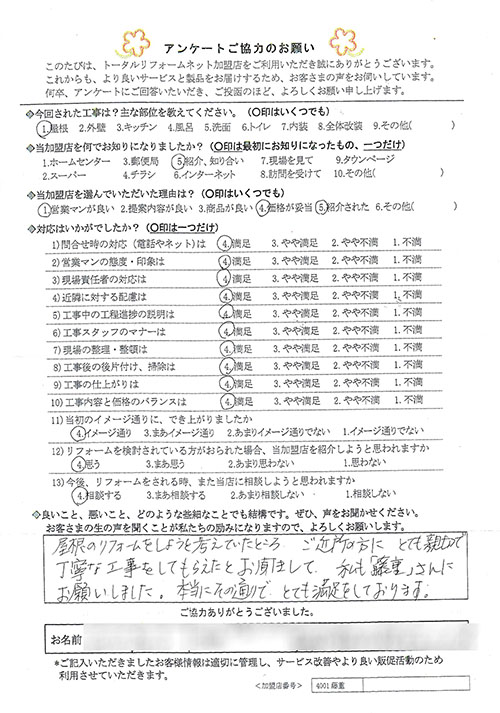 アンケートご協力のお願い
このたびは、トータルリフォームネット加盟店をご利用いただき誠にありがとうございます。
これからも、より良いサービスと製品をお届けするため、お客さまの声をお伺いしています。
何卒、アンケートにご回答いただき、ご投函のほど、よろしくお願い申し上げます。
◆今回された工事は?主な部位を教えてください。(○印はいくつでも)
1.屋根 2.外壁 3.キッチン 4.風呂 5.洗面 6.トイレ 7.内装 8.全体改装 9.その他( )
◆当加盟店を何でお知りになりましたか?(○印は最初にお知りになったもの、一つだけ)
1.ホームセンター 3.郵便局 5.紹介、知り合い 7.現場を見て 9.タウンページ
2.スーパー 4.チラシ 6.インターネット 8.訪問を受けて 10.その他( )
◆当加盟店を選んでいただいた理由は?(○印はいくつでも)
1.営業マンが良い 2.提案内容が良い 3.商品が良い 4.価格が妥当 5.紹介された 6.その他( )
◆対応はいかがでしたか?(○印は一つだけ)
1)問合せ時の対応(電話やネット)は 4.満足 3.やや満足 2.やや不満 1.不満
2)営業マンの態度・印象は 4.満足 3.やや満足 2.やや不満 1.不満
3)現場責任者の対応は 4.満足 3.やや満足 2.やや不満 1.不満
4)近隣に対する配慮は 4.満足 3.やや満足 2.やや不満 1.不満
5)工事中の工程進捗の説明は 4.満足 3.やや満足 2.やや不満 1.不満
6)工事スタッフのマナーは 4.満足 3.やや満足 2.やや不満 1.不満
7)現場の整理・整頓は 4.満足 3.やや満足 2.やや不満 1.不満
8)工事後の後片付け、掃除は 4.満足 3.やや満足 2.やや不満 1.不満
9)工事の仕上がりは 4.満足 3.やや満足 2.やや不満 1.不満
10)工事内容と価格のバランスは 4.満足 3.やや満足 2.やや不満 1.不満
11)当初のイメージ通りに、でき上がりましたか
4.イメージ通り 3.まあイメージ通り 2.あまりイメージ通りでない 1.イメージ通りでない
12)リフォームを検討されている方がおられた場合、当加盟店を紹介しようと思われますか
4.思う 3.まあ思う 2.あまり思わない 1.思わない
13)今後、リフォームをされる時、また当店に相談しようと思われますか
4.相談する 3.まあ相談する 2.あまり相談しない 1.相談しない
◆良いこと、悪いこと、どのような些細なことでも結構です。ぜひ、声をお聞かせください。
お客さまの生の声を聞くことが私たちの励みになりますので、よろしくお願いします。
屋根のリフォームをしようと考えていたところ ご近所の方に とても親切で
丁寧な工事をしてもらえたとお聞きして 私も「藤重」さんに
お願いしました。本当にその通りで とても満足をしております。
ご協力ありがとうございました。
お名前
*ご記入いただきましたお客様情報は適切に管理し、サービス改善やより良い販促活動のため
利用させていただきます。
<加盟店番号> 4001藤重